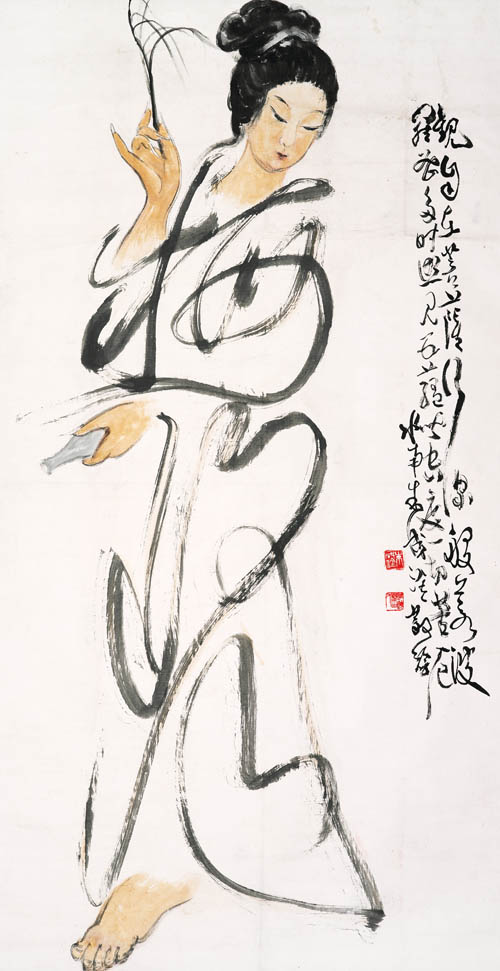 觀自在菩薩行深般若波
羅蜜多時照見五蘊皆空度一切苦厄
朱成淦敬繪